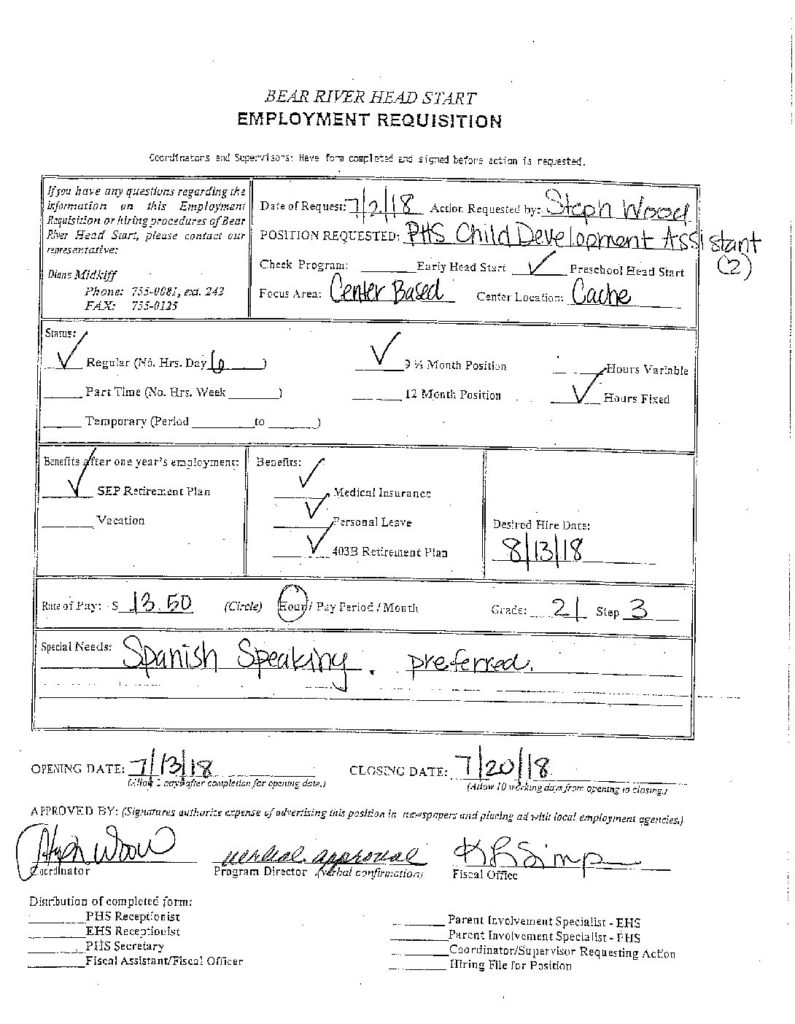 BEAR RIVER HEAD START
EMPLOYMENT REQUISITION
Coordinators and Supervisors: Have form completed and signed before action is requested.
If you have any questions regarding the
information on this Employment
Requisition or hiring procedures of Bear
River Head Start, please contact our
representative:
Diane Midkiff
Phone: 755-0081, ext. 242
FAX: 755-0125
Date of Request: 7/2/18 Action Requested by: Steph Wood
POSITION REQUESTED: PHS Child Development Assistant
(2)
Check Program: ______ Early Head Start ✓ Preschool Head Start
Focus Area: Center Based Center Location: Cache
Status: ✓
✓ Regular (No. Hrs. Day 6 )
______ Part Time (No. Hrs. Week ______)
______ Temporary (Period ______ to ______)
✓ 9 ½ Month Position
______ 12 Month Position
______ Hours Variable
✓ Hours Fixed
Benefits after one year's employment:
✓ SEP Retirement Plan
______ Vacation
Benefits: ✓
✓ Medical Insurance
✓ Personal Leave
✓ 403B Retirement Plan
Desired Hire Date:
8/13/18
Rate of Pay: $ 13.50 (Circle) Hour / Pay Period / Month Grade: 21 Step 3
Special Needs: Spanish Speaking . preferred.
OPENING DATE: 7/13/18 CLOSING DATE: 7/20/18
(Allow 2 days after completion for opening date.) (Allow 10 working days from opening to closing.)
APPROVED BY: (Signatures authorize expense of advertising this position in newspapers and placing ad with local employment agencies.)
Steph Wood verbal approval K R Simp
Coordinator Program Director (verbal confirmation) Fiscal Office
Distribution of completed form:
______ PHS Receptionist
______ EHS Receptionist
______ PHS Secretary
______ Fiscal Assistant/Fiscal Officer
______ Parent Involvement Specialist - EHS
______ Parent Involvement Specialist - PHS
______ Coordinator/Supervisor Requesting Action
______ Hiring File for Position